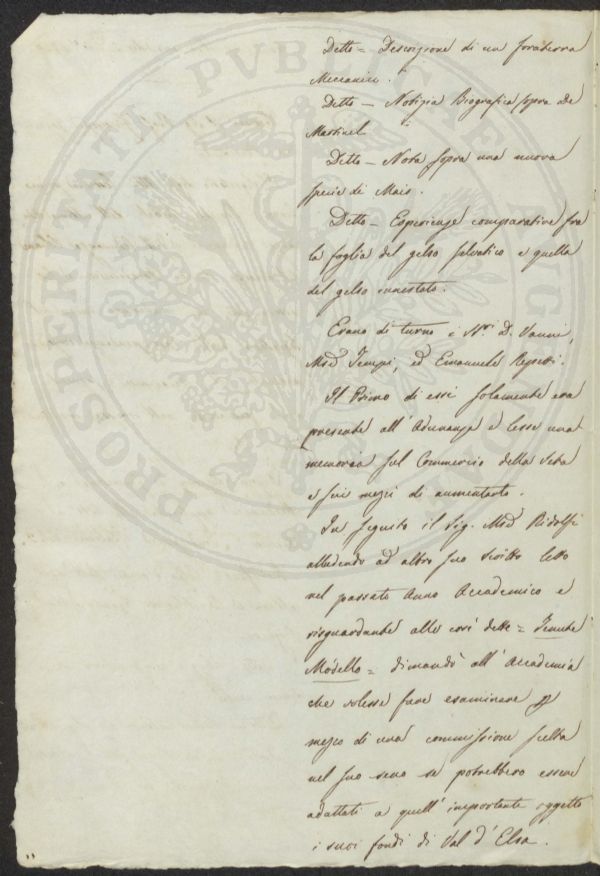 Detto = Descrizione di un foraterra
Meccanico.
Detto — Notizia Biografica sopra De
Martinel
Detto — Nota sopra una nuova
specie di Mais.
Detto — Esperienze comparative fra
la foglia del gelso selvatico e quella
del gelso innestato.
Erano di turno i Sri. D. Vanni,
Med Tempi, ed Emanuele Repetti.
Il Primo di essi solamente era
presente all' Adunanza e lesse una
memoria sul Commercio della Seta
e sui mezzi di aumentarlo.
In seguito il Sig. March Ridolfi
alludendo ad altro suo scritto letto
nel passato Anno Accademico e
risguardante alle così dette = Tenute
Modello = dimandò all' Accademia
che volesse fare esaminare p
mezzo di una commissione scelta
nel suo seno se potrebbero essere
adattati a quell' importante oggetto
i suoi fondi di Val d' Elsa.
PROSPERITATI PVBLICAE AVGENDAE